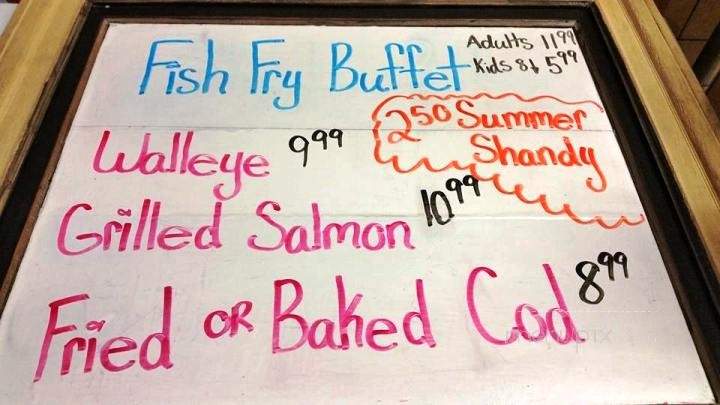 Fish Fry Buffet Adults 11 99
Kids 8↓ 5 99
2 50 Summer
Shandy
Walleye 9 99
Grilled Salmon 10 99
Fried OR Baked Cod 8 99